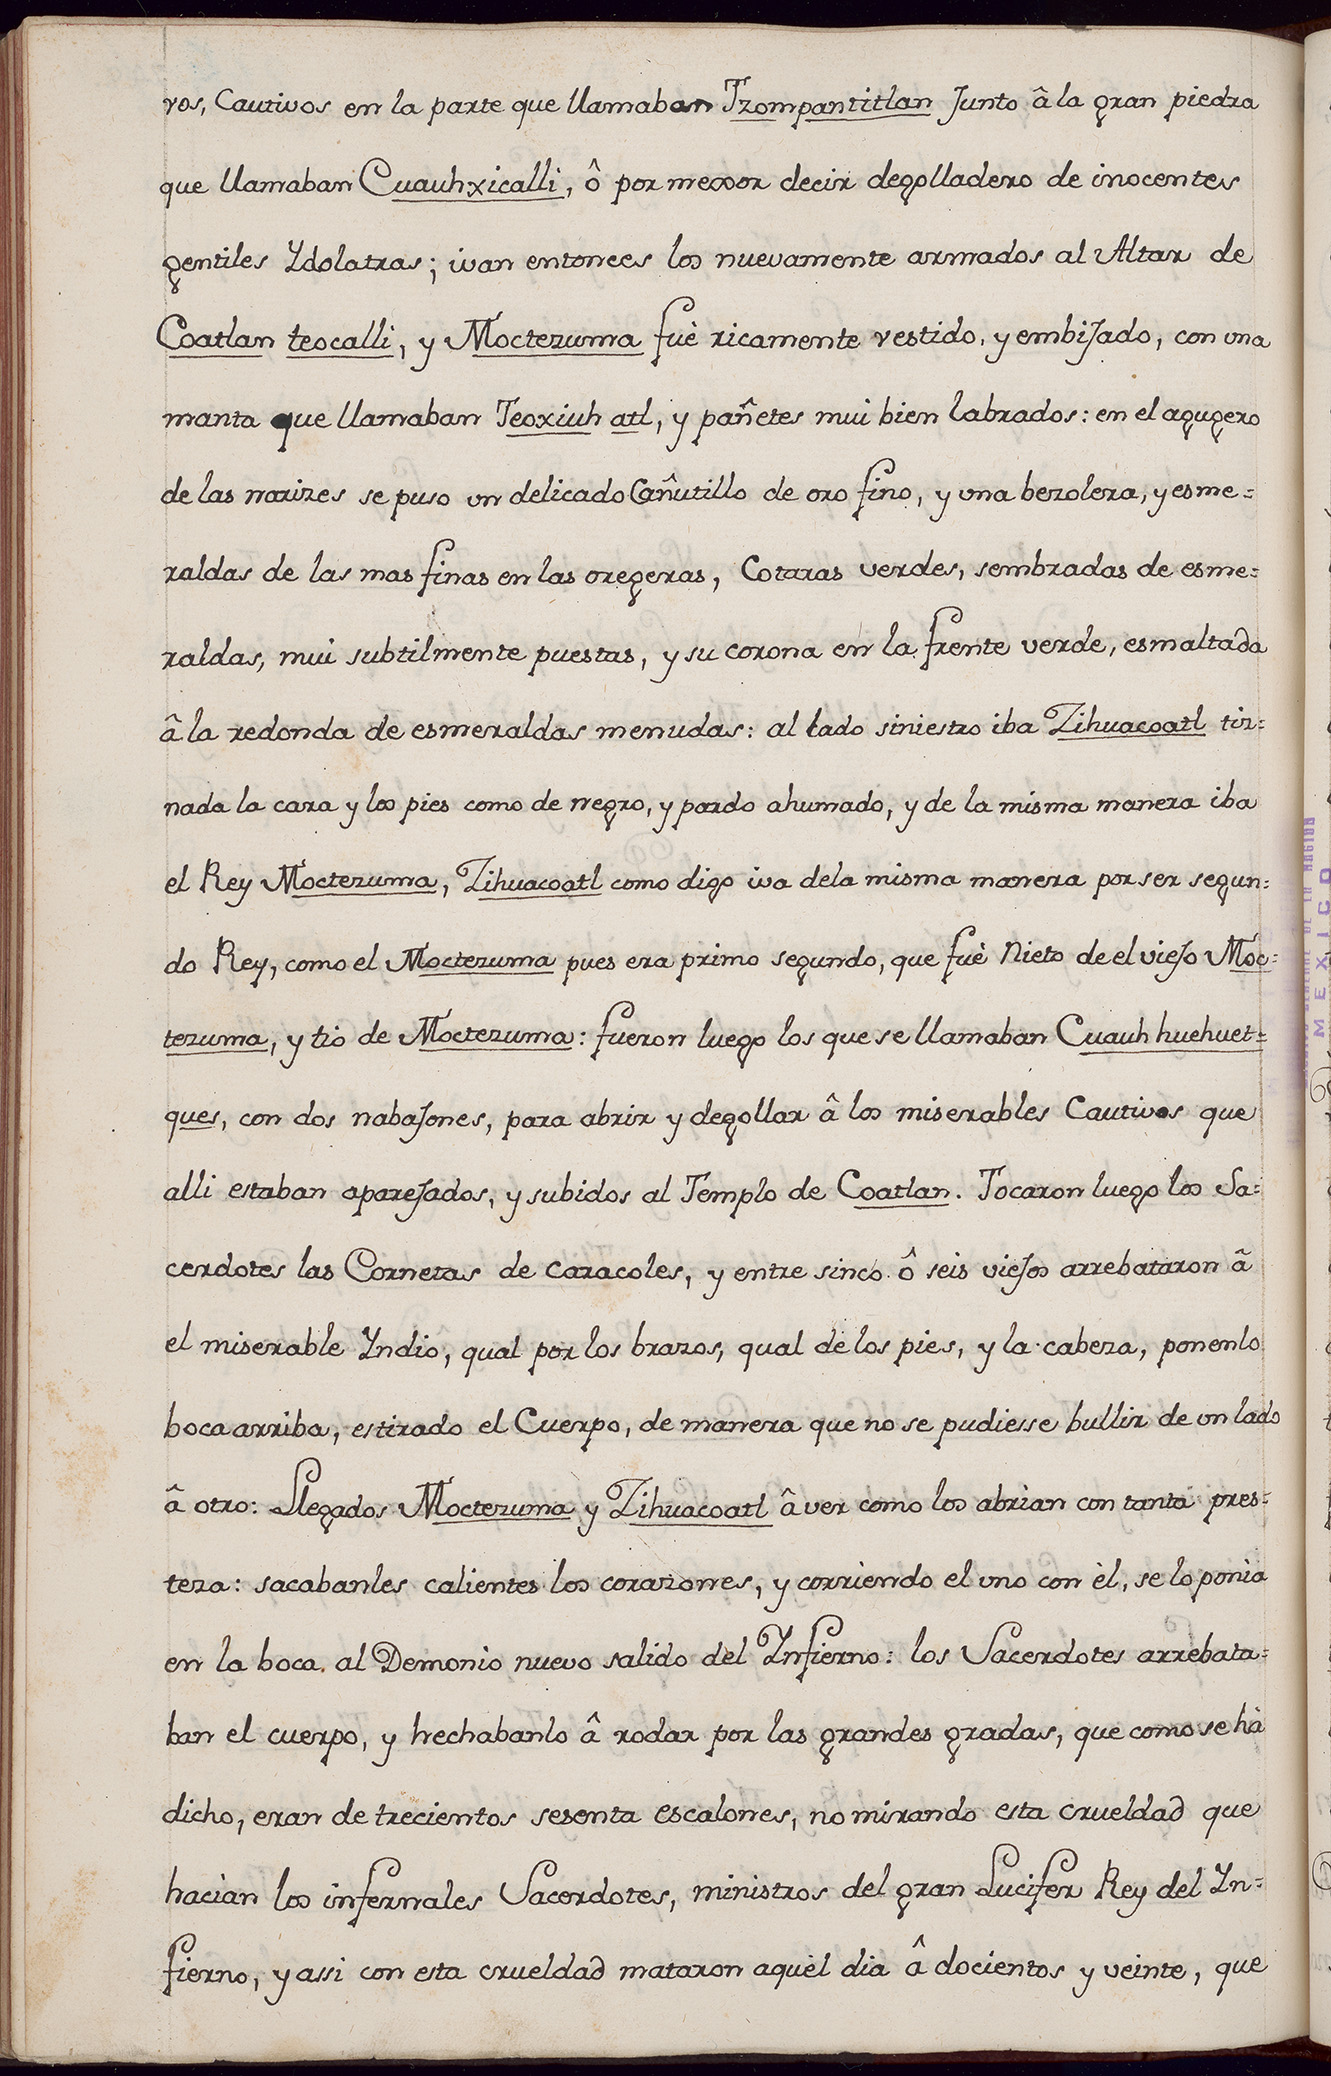 vos, Cautivos en la parte que llamaban Tzompantitlan Junto â la gran piedra
que llamaban Cuauhxicalli, ô por mexor decir degolladero de inocentes
gentiles Ydolatras; ivan entonces los nuevamente armados al Altar de
Coatlan teocalli, y Moctezuma fuè ricamente vestido, y embiJado, con una
manta que llamaban Teoxiuh atl, y pañetes mui bien labrados: en el agugero
de las narizes se puso un delicado Cañutillo de oro fino, y una bezolera, y esme=
raldas de las mas finas en las oregeras, Cotaras verdes, sembradas de esme=
raldas, mui subtilmente puestas, y su corona en la frente verde, esmaltada
â la redonda de esmeraldas menudas: al lado siniestro iba Zihuacoatl tiz=
nada la cara y los pies como de negro, y pardo ahumado, y de la misma manera iba
el Rey Moctezuma, Zihuacoatl como digo iva dela misma manera por ser segun=
do Rey, como el Moctezuma pues era primo segundo, que fuè Nieto de el vieJo Moc=
tezuma, y tio de Moctezuma: fueron luego los que se llamaban Cuauh huehuet=
ques, con dos nabaJones, para abrir y degollar â los miserables Cautivos que
alli estaban apareJados, y subidos al Templo de Coatlan. Tocaron luego los Sa=
cerdotes las Cornetas de Caracoles, y entre sinco ô seis vieJos arrebataron â
el miserable Yndio, qual por los brazos, qual de los pies, y la cabeza, ponenlo
boca arriba, estirado el Cuerpo, de manera que no se pudiesse bullir de un lado
â otro: Llegados Moctezuma y Zihuacoatl â ver como los abrian con tanta pres=
teza: sacabanles calientes los corazones, y corriendo el uno con èl, se lo ponia
en la boca al Demonio nuevo salido del Ynfierno: los Sacerdotes arrebata=
ban el cuerpo, y hechabanlo â rodar por las grandes gradas, que como se hà
dicho, eran de trecientos sesenta escalones, no mirando esta crueldad que
hacian los infernales Sacerdotes, ministros del gran Lucifer Rey del Yn=
fierno, y assi con esta crueldad mataron aquel dia â docientos y veinte, que
MEXICO